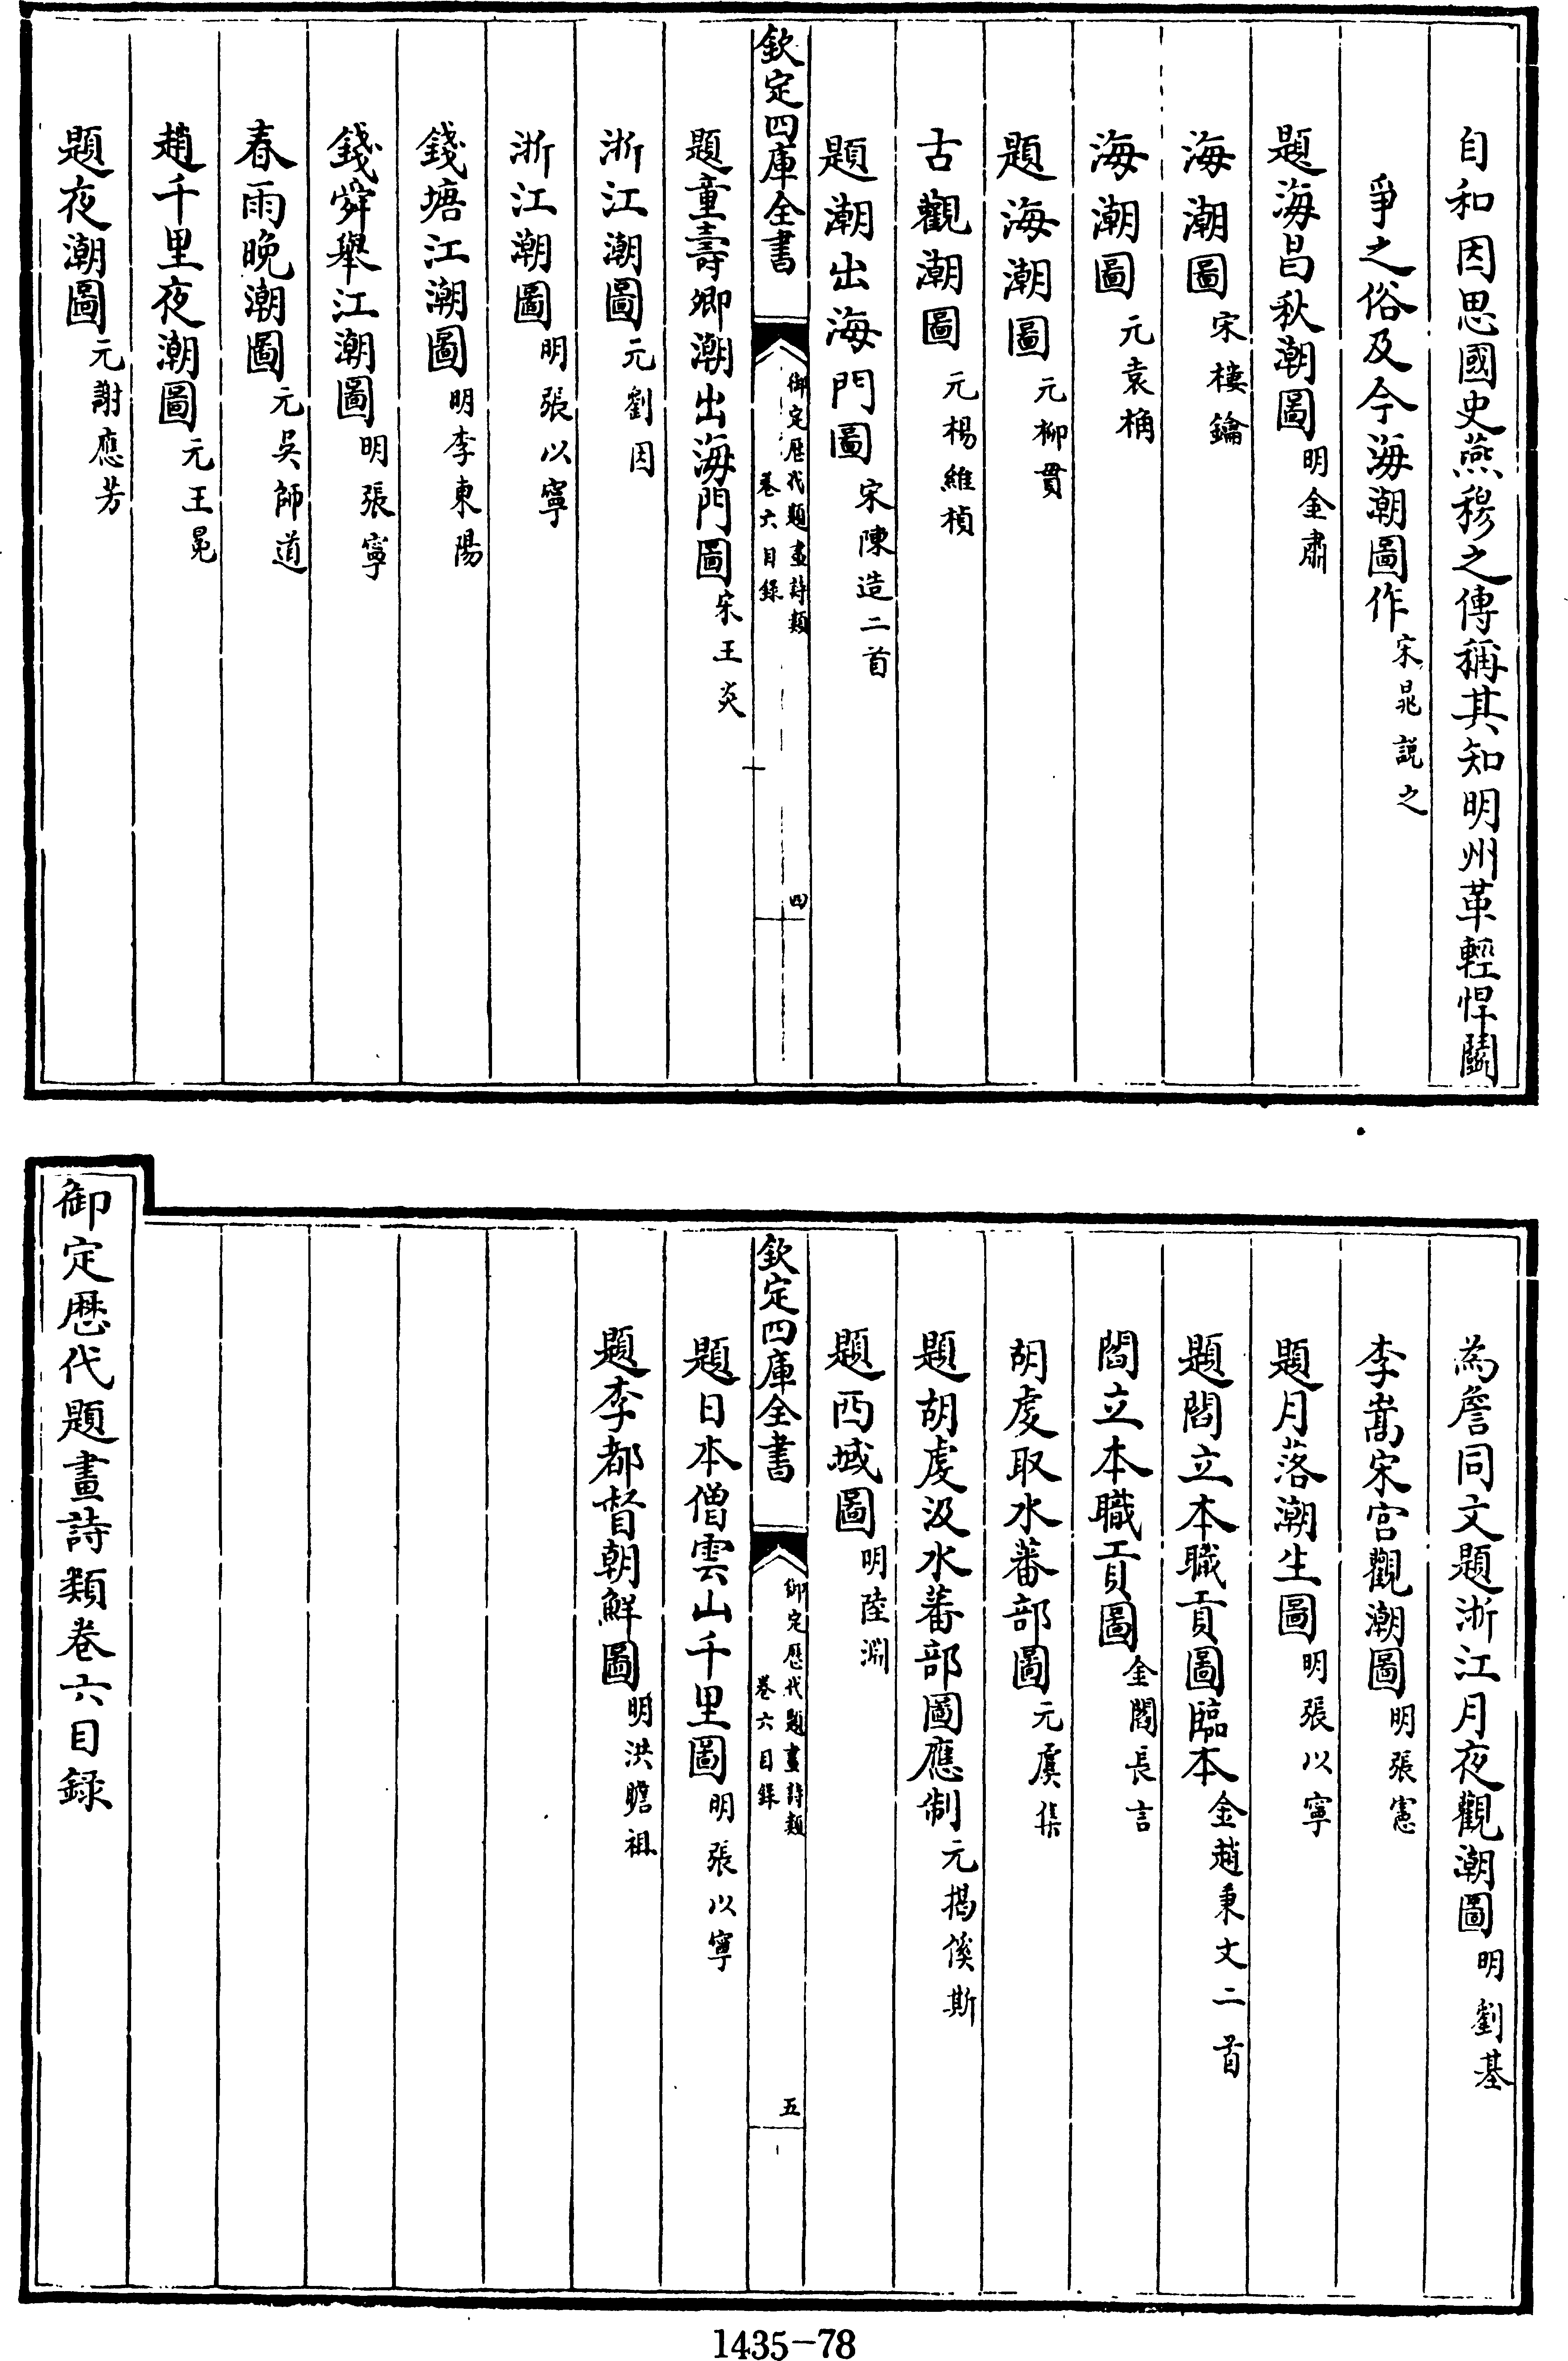 自和因思國史燕穆之傳稱其知明州革輕悍鬬
爭之俗及今海潮圖作宋晁説之
題海昌秋潮圖明金肅
海潮圖宋樓鑰
海潮圖元袁桷
題海潮圖元柳貫
古觀潮圖元楊維楨
題潮出海門圖宋陳造二首
欽定四庫全書
御定歴代題畫詩類
卷六目録
四
題童壽卿潮出海門圖宋王炎
浙江潮圖元劉因
浙江潮圖明張以寧
錢塘江潮圖明李東陽
錢舜舉江潮圖明張寧
春雨晚潮圖元吳師道
趙千里夜潮圖元王冕
題夜潮圖元謝應芳
為詹同文題浙江月夜觀潮圖明劉基
李嵩宋宫觀潮圖明張憲
題月落潮生圖明張以寧
題閻立本職貢圖臨本金趙秉文二首
閻立本職貢圖金閻長言
胡虔取水蕃部圖元虞集
題胡虔汲水蕃部圖應制元揭傒斯
題西域圖明陸淵
欽定四庫全書
御定歴代題畫詩類
卷六目録
五
題日本僧雲山千里圖明張以寧
題李都督朝鮮圖明洪瞻祖
御定歴代題畫詩類卷六目録
1435-78